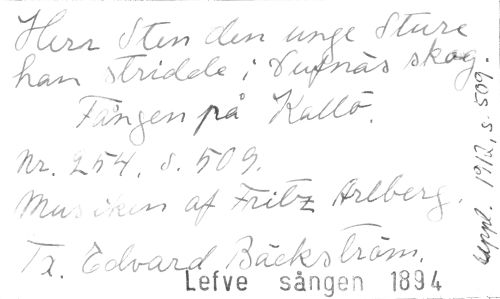 Herr Sten den unge Sture
han stridde i Dufnäs skog.
Fången på Kallö.
Nr. 254, s. 509.
Musiken af Fritz Arlberg.
Tx. Edvard Bäckström.
Lefve sången 1894
suppl. 1912, s. 509.